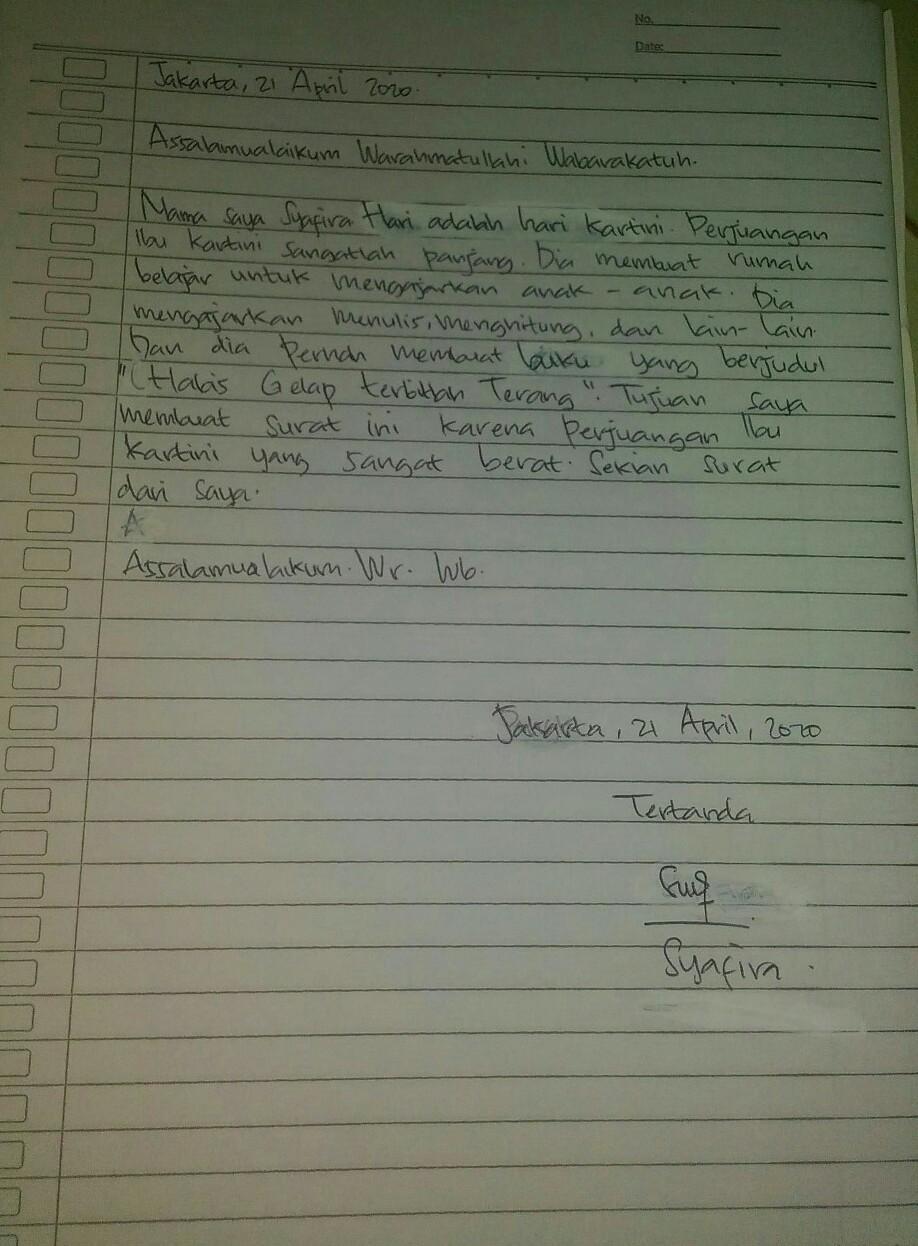 No.
Date:
Jakarta, 21 April 2020.
Assalamualaikum Warahmatullahi Wabarakatuh.
Nama saya Syafira Hari adalah hari Kartini. Perjuangan
Ibu Kartini sangatlah panjang. Dia membuat rumah
belajar untuk mengajarkan anak - anak. Dia
mengajarkan menulis, menghitung, dan lain-lain.
Dan dia pernah membuat buku yang berjudul
"(Habis Gelap terbitlah Terang". Tujuan saya
membuat surat ini karena perjuangan Ibu
Kartini yang sangat berat. Sekian surat
dari saya.
A
Assalamualaikum. Wr. Wb.
Jakarta, 21 April, 2020
Tertanda
Syafira.